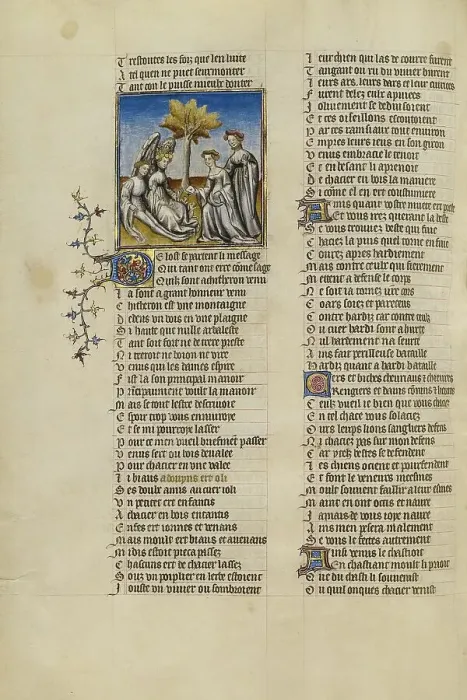 T restoutes les foiz que len luite
A tel quen ne puet seurmonter
T ant con le puisse mieulx donter
T Elost se partent li message
Q ui tant ont erre cõme sage
Quilz sont a citheron venu
L a sont a grant honneur tenu
C itheron est une montaigne
D edens un bois en une plaigne
S i haute que nulle arbaleste
T ant soit fort ne de trere preste
N i treroit ne boion ne vire
V enus qui les dames espire
F ist la son principal manoir
P rincipaument voult la manoir
M ais se tout lestre descrivoie
E spoir trop vous ennuiroye
E t se mi pourroye lasser
P our ce men vueil briefmẽt passer
V enus sert ou bois devalee
P our chacier en une valee
L i biaus adonys ert o li
S es douls amis au cuer ioli
V n petitet ert enfantis
A chacier en bois ententis
E nfes ert ionnes et venans
M ais moult ert biaus et avenans
M idis estoit pieca passez
C hascuns ert de chacier lassez
S ouz un poplier en lerbe estoient
I ouste un vivier ou sombroient
L eur chien qui las de courre furent
T angant ou ru du vivier burent
L eurs ars, leurs dars et leur cuirees
F urent delez eulx apuiees
I olivement se deduisoient
E t ces oiseillons escoutoient
P ar ces rainsiaux tout environ
E mpres leurs ieus en son giron
V enus embracie le tenoit
E t en besant li aprenoit
D e chacier en bois la maniere
S i come il en ert coustumiere
A mis quant vostre muete ert preste
E t vous irez querant la beste
S e vous trouvez beste qui fuie
C haciez la puis quel torne en fuie
C ourez apres hardiement
M ais contre ceulx qui fierement
M etent a defense le cors
N e soit ia tornez vostre cors
C oars soiez et pareceus
C ontre hardiz car contre ceulx
O u cuer hardi sont ahurte
N ul hardement na seurte
A ins fait perilleuse bataille
H ardiz quant a hardi bataille
C ers et biches chevriaus et chievres
R engiers et dains connins et lievres
C eulx vueil ie bien que vous chaciez
E n tel chace vous solaciez
O urs leups lions sanglers defens
N i chaciez pas sur mon defens
C ar ytelz bestes se defendent
L es chiens ocient et pourfendent
E t font le veneurs meismes
M oult souvent faillir a leur esmes
M aint en ont ocis et navre
I amais de vous ioye navre
A ins men pesera malement
S e vous le fetes autrement
A insi venus le chastioit
E n chastiant moult li prioit
Q ue du chasti li souvenist
O u quil onques chacier venist